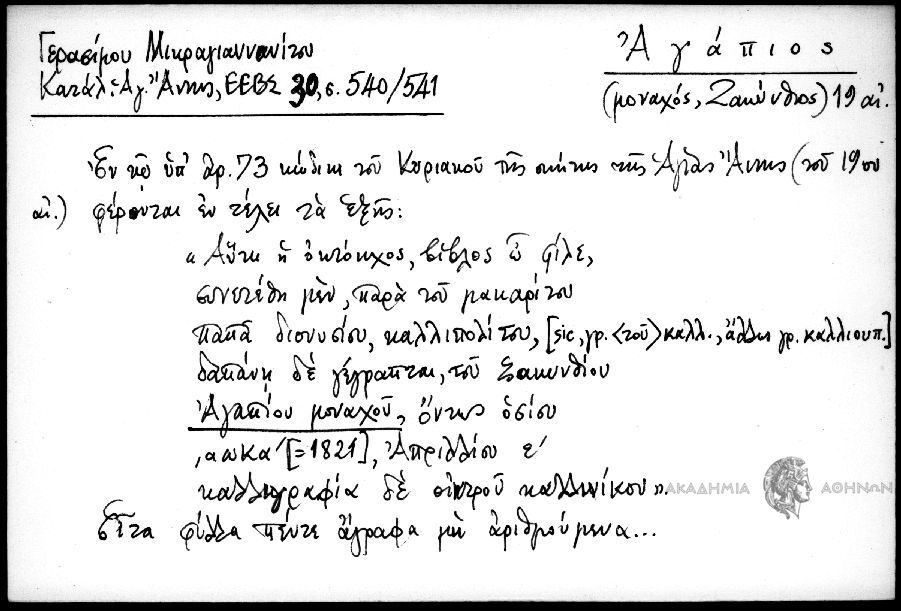 Γερασίμου Μικραγιαννανίτου
Κατάλ. Ἁγ. Ἄννης, ΕΕΒΣ 30, σ. 540/541
Ἀγάπιος
(μοναχός, Ζακύνθιος) 19 αἰ.
Ἐν τῷ ὑπ' ἀρ. 73 κώδικι τοῦ Κυριακοῦ τῆς σκήτης τῆς Ἁγίας Ἄννης (τοῦ 19ου
αἰ.) φέρονται ἐν τέλει τὰ ἑξῆς:
« Αὕτη ἡ ὀκτόηχος, βίβλος ὦ φίλε,
συνετέθη μὲν, παρὰ τοῦ μακαρίτου
παπᾶ διονυσίου, καλλιπολίτου, [sic, γρ. <τοῦ> καλλ., ἄλλως γρ. καλλιουπ.]
δαπάνῃ δὲ γέγραπται, τοῦ ζακυνθίου
Ἀγαπίου μοναχοῦ, ὄντως ὁσίου
,αωκα´ [=1821], Ἀπριλλίου ε´
καλλιγραφία δὲ οἰκτροῦ καλλινίκου».
εἶτα φύλλα πέντε ἄγραφα μὴ ἀριθμούμενα...
ΑΚΑΔΗΜΙΑ ΑΘΗΝΩΝ